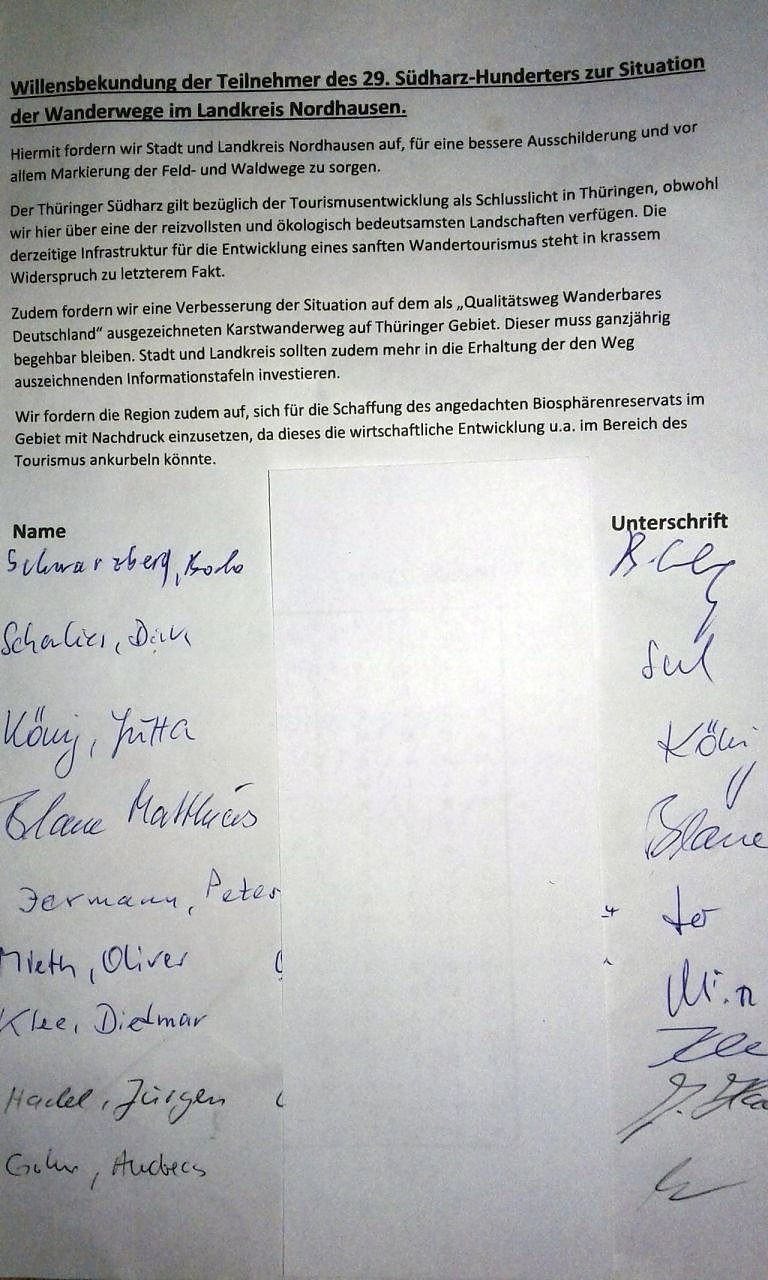 Willensbekundung der Teilnehmer des 29. Südharz-Hunderters zur Situation
der Wanderwege im Landkreis Nordhausen.
Hiermit fordern wir Stadt und Landkreis Nordhausen auf, für eine bessere Ausschilderung und vor
allem Markierung der Feld- und Waldwege zu sorgen.
Der Thüringer Südharz gilt bezüglich der Tourismusentwicklung als Schlusslicht in Thüringen, obwohl
wir hier über eine der reizvollsten und ökologisch bedeutsamsten Landschaften verfügen. Die
derzeitige Infrastruktur für die Entwicklung eines sanften Wandertourismus steht in krassem
Widerspruch zu letzterem Fakt.
Zudem fordern wir eine Verbesserung der Situation auf dem als „Qualitätsweg Wanderbares
Deutschland“ ausgezeichneten Karstwanderweg auf Thüringer Gebiet. Dieser muss ganzjährig
begehbar bleiben. Stadt und Landkreis sollten zudem mehr in die Erhaltung der den Weg
auszeichnenden Informationstafeln investieren.
Wir fordern die Region zudem auf, sich für die Schaffung des angedachten Biosphärenreservats im
Gebiet mit Nachdruck einzusetzen, da dieses die wirtschaftliche Entwicklung u.a. im Bereich des
Tourismus ankurbeln könnte.
Name Unterschrift
Schwarzberg, Bodo
Dirk
König, Jutta
Blaue Matthias Blaue
Jermann, Peter
Mieth, Oliver
Klee, Dietmar
Jürgen
Andreas